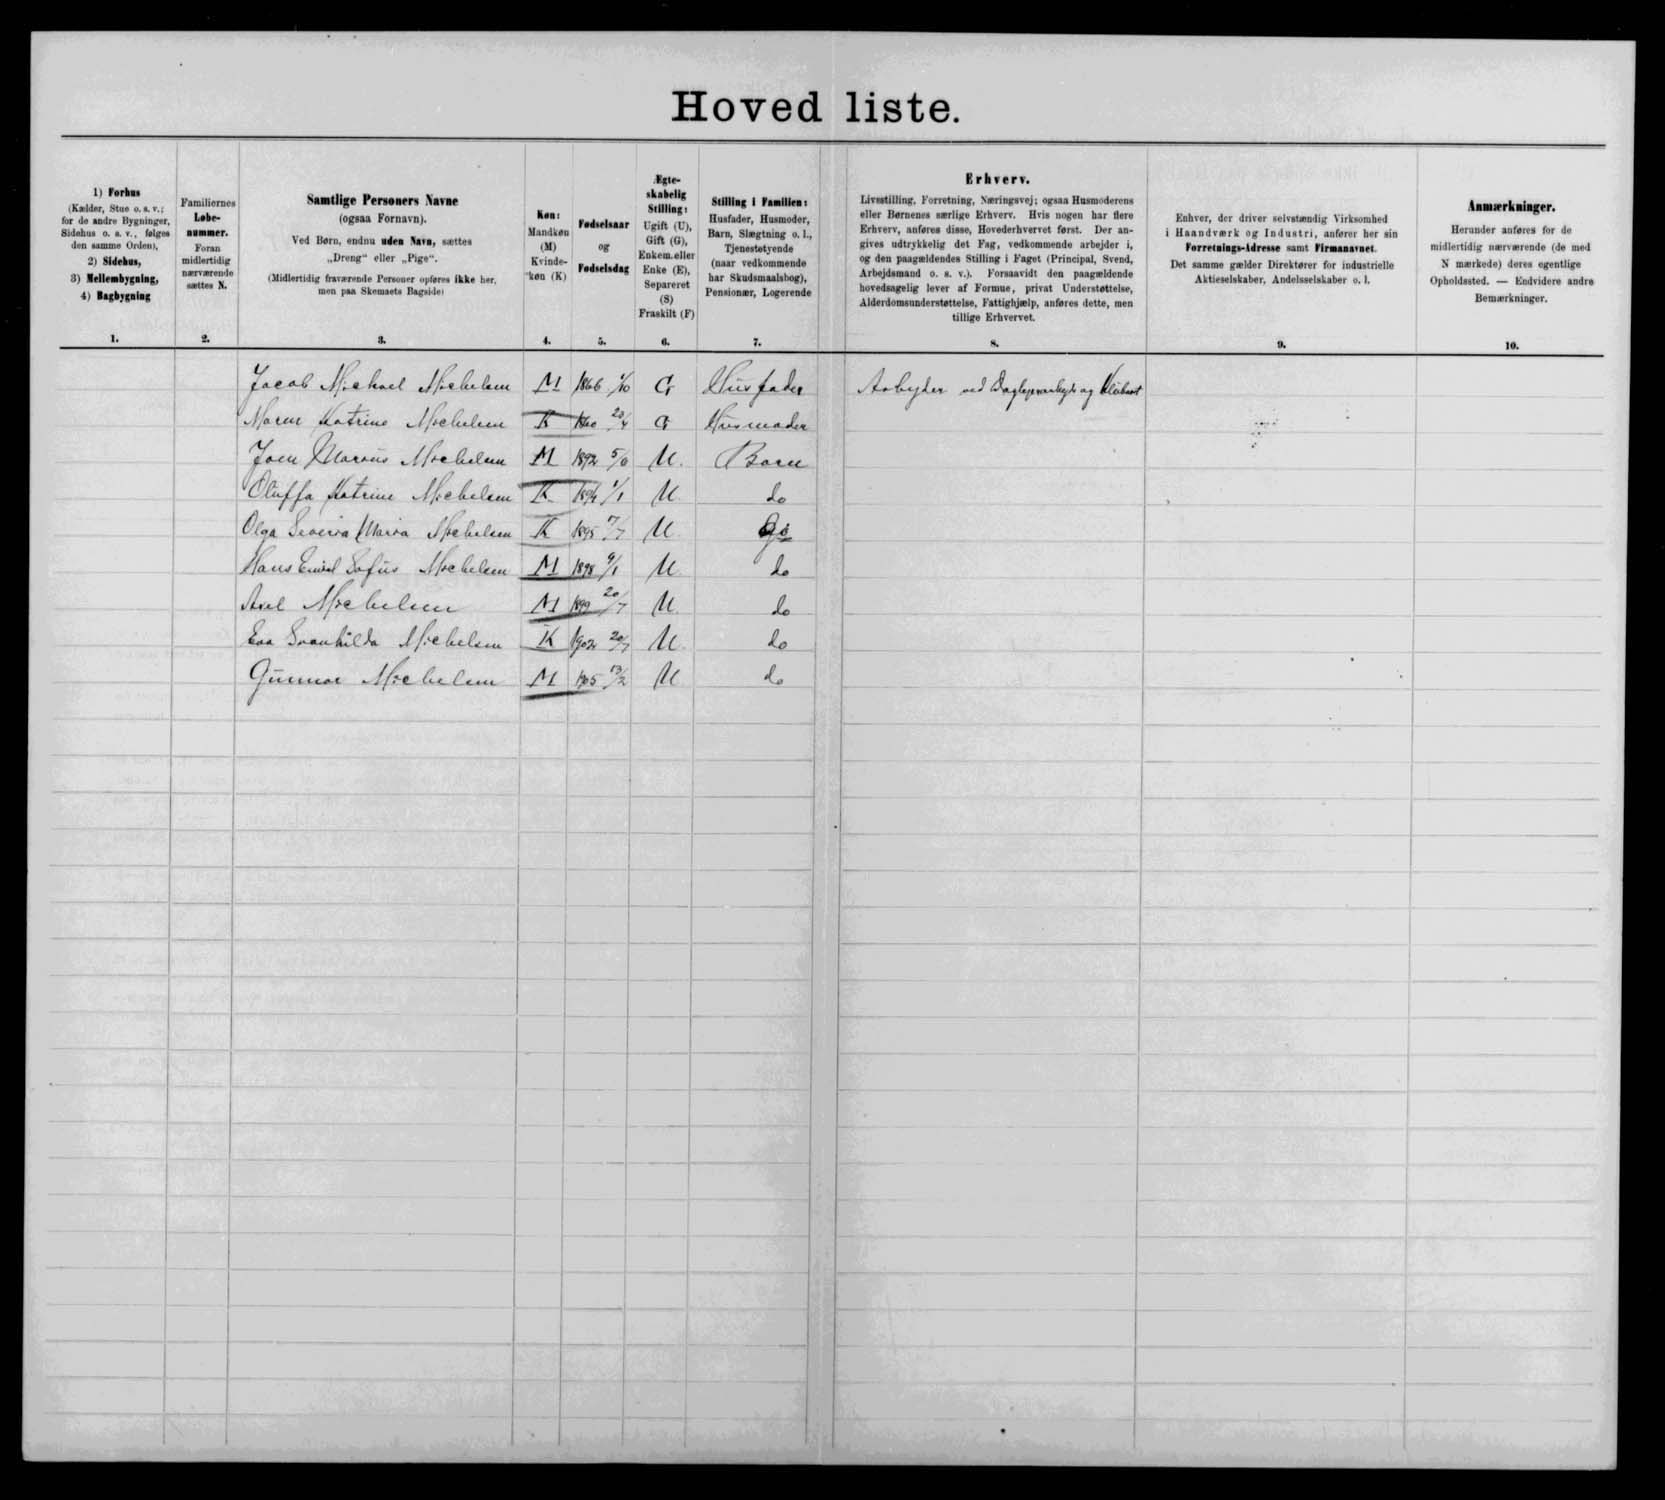 Hovedliste.
1) Forhus
(Kælder, Stue o. s. v.;
for de andre Bygninger,
Sidehus o. s. v., følges
den samme Orden),
2) Sidehus,
3) Mellembygning,
4) Bagbygning
1.
Familiernes
Løbe-
nummer.
Foran
midlertidig
nærværende
sættes N.
2.
Samtlige Personers Navne
(ogsaa Fornavn).
Ved Børn, endnu uden Navn, sættes
„Dreng“ eller „Pige“.
(Midlertidig fraværende Personer opføres ikke her,
men paa Skemaets Bagside)
3.
Køn:
Mandkøn
(M)
Kvinde-
køn (K)
4.
Fødselsaar
og
Fødselsdag
5.
Ægte-
skabelig
Stilling:
Ugift (U),
Gift (G),
Enkem. eller
Enke (E),
Separeret
(S)
Fraskilt (F)
6.
Stilling i Familien:
Husfader, Husmoder,
Barn, Slægtning o. l.,
Tjenestetyende
(naar vedkommende
har Skudsmaalsbog),
Pensionær, Logerende
7.
Erhverv.
Livsstilling, Forretning, Næringsvej; ogsaa Husmoderens
eller Børnenes særlige Erhverv. Hvis nogen har flere
Erhverv, anføres disse, Hovederhvervet først. Der an-
gives udtrykkelig det Fag, vedkommende arbejder i,
og den paagældendes Stilling i Faget (Principal, Svend,
Arbejdsmand o. s. v.). Forsaavidt den paagældende
hovedsagelig lever af Formue, privat Understøttelse,
Alderdomsunderstøttelse, Fattighjælp, anføres dette, men
tillige Erhvervet.
8.
Enhver, der driver selvstændig Virksomhed
i Haandværk og Industri, anfører her sin
Forretnings-Adresse samt Firmanavnet.
Det samme gælder Direktører for industrielle
Aktieselskaber, Andelsselskaber o. l.
9.
Anmærkninger.
Herunder anføres for de
midlertidig nærværende (de med
N mærkede) deres egentlige
Opholdssted. — Endvidere andre
Bemærkninger.
10.
Jacob Michael Michelsen M 1866 1/10 G Husfader Arbejder ved og
Maren Katrine Michelsen K 20/4 G Husmoder
Joen Marius Michelsen M 1892 U. Barn
Oluffa Katrine Michelsen K 1/1 U do
Olga Maria Michelsen K 1895 U do
Hans Emil Sofus Michelsen M 1898 9/1 U do
Axel Michelsen M 1899 20/7 U do
Eva Svanhilda Michelsen K 1902 20/7 U do
Gunnar Michelsen M 1905 13/2 U do